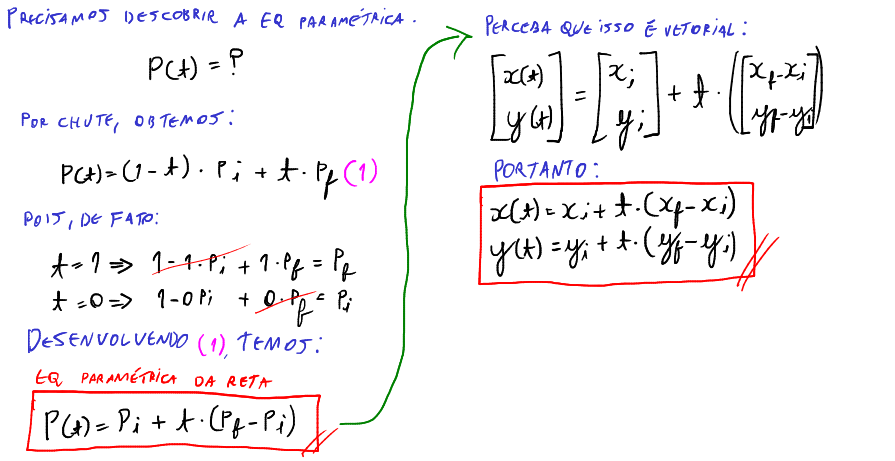 PRECISAMOS DESCOBRIR A EQ PARAMÉTRICA.
P(t) = ?
POR CHUTE, OBTEMOS:
P(t) = (1 - t) · Pi + t · Pf (1)
POIS, DE FATO:
t = 1 => 1 - 1 · Pi + 1 · Pf = Pf
t = 0 => 1 - 0 Pi + 0 · Pf = Pi
DESENVOLVENDO (1), TEMOS:
EQ PARAMÉTRICA DA RETA
P(t) = Pi + t · (Pf - Pi)
PERCEBA QUE ISSO É VETORIAL:
[x(t)] = [xi] + t · ([xf - xi])
[y(t)] [yi] [yf - yi]
PORTANTO:
x(t) = xi + t · (xf - xi)
y(t) = yi + t · (yf - yi)